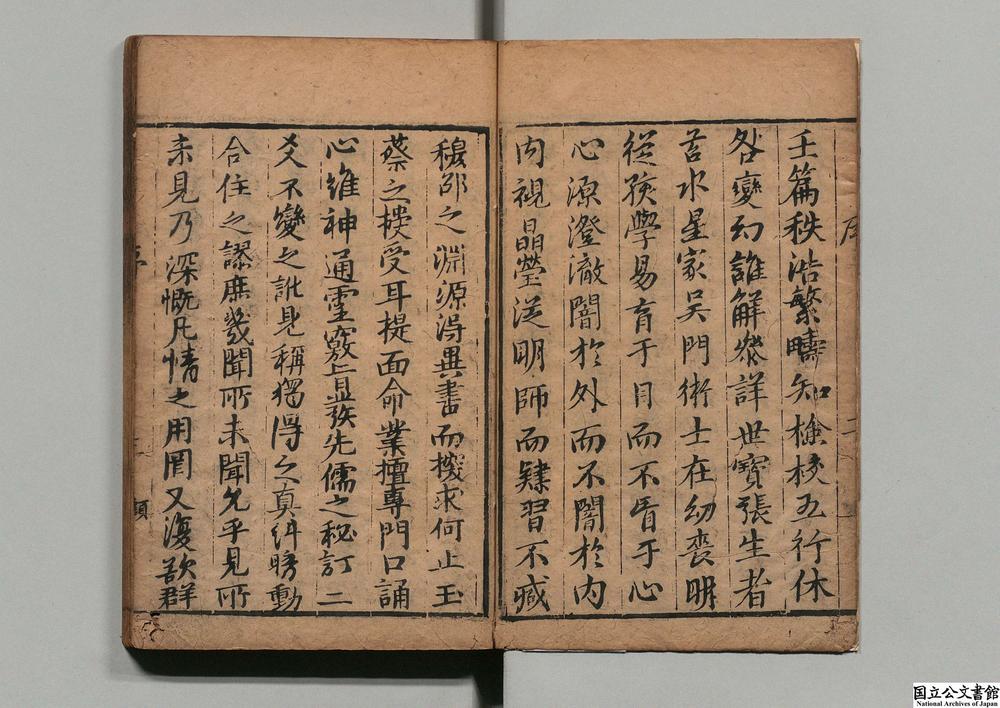 壬篇秩浩繁疇知檢校五行休
咎變幻誰解參詳世寳張生者
苕水星家吳門術士在幼喪明
從矦學易盲于目而不盲于心
心源澄澈闇於外而不闇於内
内視晶瑩從明師而肄習不臧
穆邵之淵源得異書而搜求何止玉
蔡之授受耳提面命業擅專門口誦
心維神通靈竅上顯矦先儒之秘訂二
爻不變之訛見稱獨得之真糾暗動
合住之謬庶幾聞所未聞允乎見所
未見乃深慨凡情之用罔又復欲群
序
二
国立公文書館
National Archives of Japan